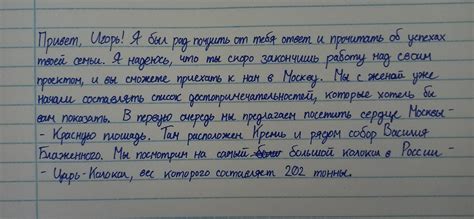 Привет, Игорь! Я был рад получить от тебя ответ и прочитать об успехах
твоей семьи. Я надеюсь, что ты скоро закончишь работу над своим
проектом, и вы сможете приехать к нам в Москву. Мы с женой уже
начали составлять список достопримечательностей, которые хотел бы
вам показать. В первую очередь мы предлагаем посетить сердце Москвы -
- Красную площадь. Там расположен Кремль и рядом собор Василия
Блаженного. Мы посмотрим на самый большой колокол в России -
- Царь-Колокол, вес которого составляет 202 тонны.